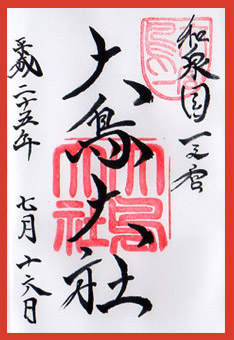 和泉国一之宮
大鳥大社
平成二十五年 七月十六日
大鳥大社